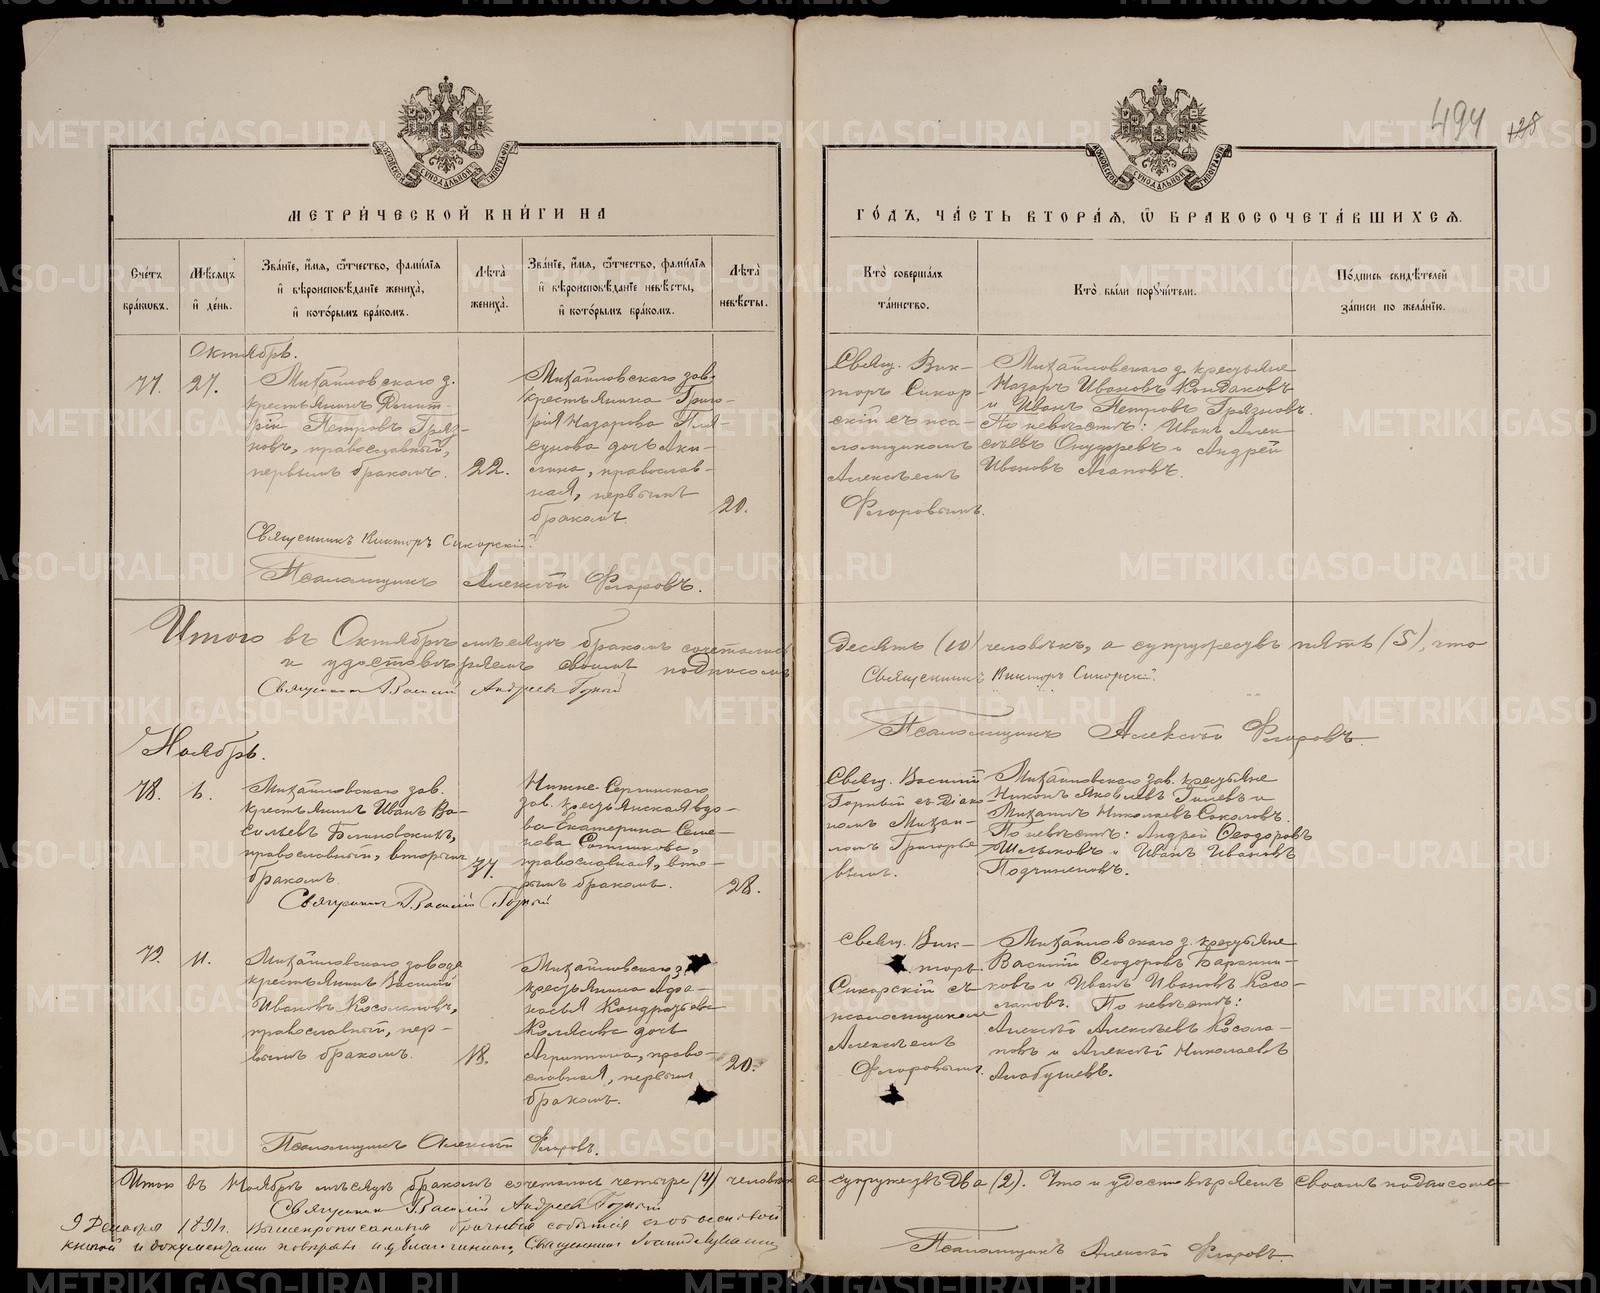 494 128
МЕТРИЧЕСКОЙ КНИГИ НА
ГОДЪ, ЧАСТЬ ВТОРАЯ, Ѿ БРАКОСОЧЕТАВШИХСЯ.
Счетъ браковъ.
Мѣсяцъ и день.
Званіе, имя, отчество, фамилія и вѣроисповѣданіе жениха, и которымъ бракомъ.
Лѣта жениха.
Званіе, имя, отчество, фамилія и вѣроисповѣданіе невѣсты, и которымъ бракомъ.
Лѣта невѣсты.
Кто совершалъ таинство.
Кто были поручители.
Подпись свидѣтелей записи по желанію.
Октябрь.
27.
Михайловскаго з.
крестьянинъ Димит-
рій Петровъ Гряз-
новъ, православный,
первымъ бракомъ.
22.
Михайловскаго зав.
крестьянина Григо-
рія Назарова Пля-
сунова дочь Аки-
лина, православ-
ная, первымъ
бракомъ.
20.
Свящ. Вик-
торъ Сикор-
скій съ пса-
ломщикомъ
Алексѣемъ
Флоровымъ.
Михайловскаго з. крестьяне
Назаръ Ивановъ Кондаковъ
и Иванъ Петровъ Грязновъ.
По невѣстѣ: Иванъ Алек-
сѣевъ и Андрей
Ивановъ Агаповъ.
Священникъ Викторъ Сикорскій.
Псаломщикъ Алексѣй Флоровъ.
Итого въ Октябрѣ мѣсяцѣ бракомъ сочеталось десять (10) человѣкъ, а супружествъ пять (5), что
и удостовѣряемъ своимъ подписомъ
Священникъ Василій Андреевъ Горный
Священникъ Викторъ Сикорскій.
Псаломщикъ Алексѣй Флоровъ.
Ноябрь.
78.
Михайловскаго зав.
крестьянинъ Иванъ Ва-
сильевъ Блиновскихъ,
православный, вторымъ
бракомъ.
37.
Нижне-Сергинскаго
зав. крестьянская вдо-
ва Екатерина Семе-
нова Сотникова,
православная, вто-
рымъ бракомъ.
28.
Свящ. Василій
Горный съ Діако-
номъ Михаи-
ломъ Григорье-
вымъ.
Михайловскаго зав. крестьяне
Никонъ Яковлевъ Гилевъ и
Михаилъ Николаевъ Соколовъ.
По невѣстѣ: Андрей Ѳеодоровъ
Шелыковъ и Иванъ Ивановъ
Подчиненовъ.
Священникъ Василій Горный
79.
11.
Михайловскаго завода
крестьянинъ Василій
Ивановъ Косолаповъ,
православный, пер-
вымъ бракомъ.
18.
Михайловскаго з.
крестьянина Афа-
насья Кондратьева
Колясова дочь
Агриппина, право-
славная, первымъ
бракомъ.
20.
Свящ. Вик-
торъ
Сикорскій съ
псаломщикомъ
Алексѣемъ
Флоровымъ.
Михайловскаго з. крестьяне
Василій Ѳеодоровъ Баранни-
ковъ и Иванъ Ивановъ Косо-
лаповъ. По невѣстѣ:
Алексѣй Алексѣевъ Косола-
повъ и Алексѣй Николаевъ
Алабушевъ.
Псаломщикъ Алексѣй Флоровъ.
Итого въ Ноябрѣ мѣсяцѣ бракомъ сочеталось четыре (4) человѣка а супружествъ два (2). Что и удостовѣряемъ своимъ подписомъ
Священникъ Василій Андреевъ Горный
1891 г. Вышепрописанныя брачныя событія
книгой и документами повѣрялъ Священникъ
Псаломщикъ Алексѣй Флоровъ.
METRIKI.GASO-URAL.RU